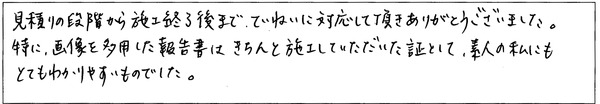 見積りの段階から施工終了後まで、ていねいに対応して頂きありがとうございました。
特に、画像を多用した報告書は きちんと施工していただいた証として、素人の私にも
とてもわかりやすいものでした。